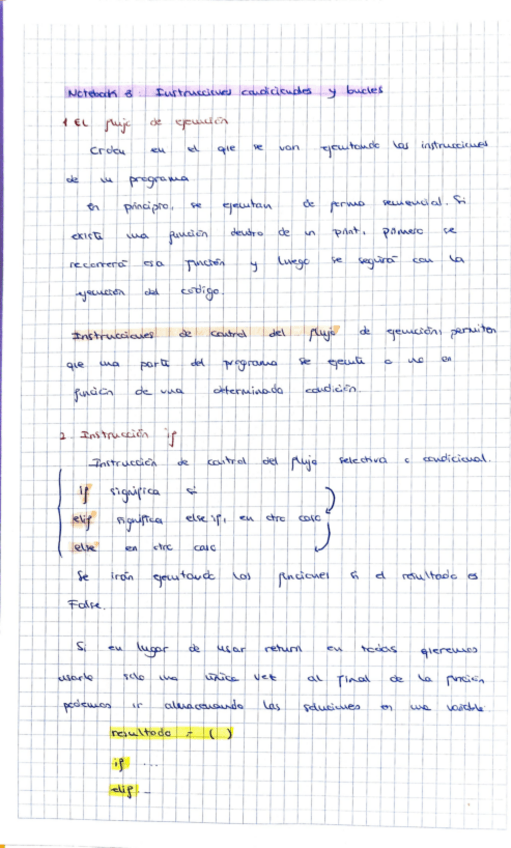 Notebook 3: Instrucciones condicionales y bucles
1 El flujo de ejecución
Orden en el que se van ejecutando las instrucciones
de un programa
En principio, se ejecutan de forma secuencial. Si
existe una función dentro de un print, primero se
recorrerá esa función y luego se seguirá con la
ejecución del código.
Instrucciones de control del flujo de ejecución, permiten
que una parte del programa se ejecute o no en
función de una determinada condición.
2. Instrucción if
Instrucción de control del flujo selectiva o condicional.
if significa si
elif significa else if, en otro caso
else en otro caso
Se irán ejecutando las funciones si el resultado es
False.
Si en lugar de usar return en todas queremos
usarlo solo una única vez al final de la función
podemos ir almacenando las soluciones en una variable.
resultado = ( )
if ...
elif ...